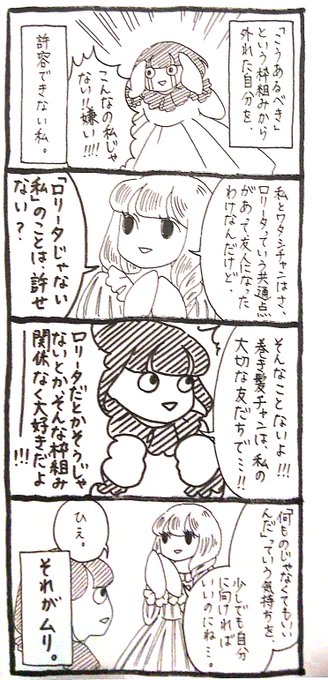 「こうあるべき」
という枠組みから
外れた自分を、
こんなの私じゃ
ない!!嫌い!!!!
許容できない私。
私とワタシチャンはさ、
ロリータっていう共通点
があって友人になった
わけなんだけど、
「ロリータじゃない
私」のことは、許せ
ない?
そんなことないよ!!!
巻き髪チャンは、私の
大切な友だちで…!!
ロリータだとかそうじゃ
ないとか、そんな枠組み
関係なく大好きだよ
!!!
「何ものじゃなくてもいい
んだ」っていう気持ちを、
少しでも自分
に向ければ
いいのにね…。
ひぇ。
それがムリ。